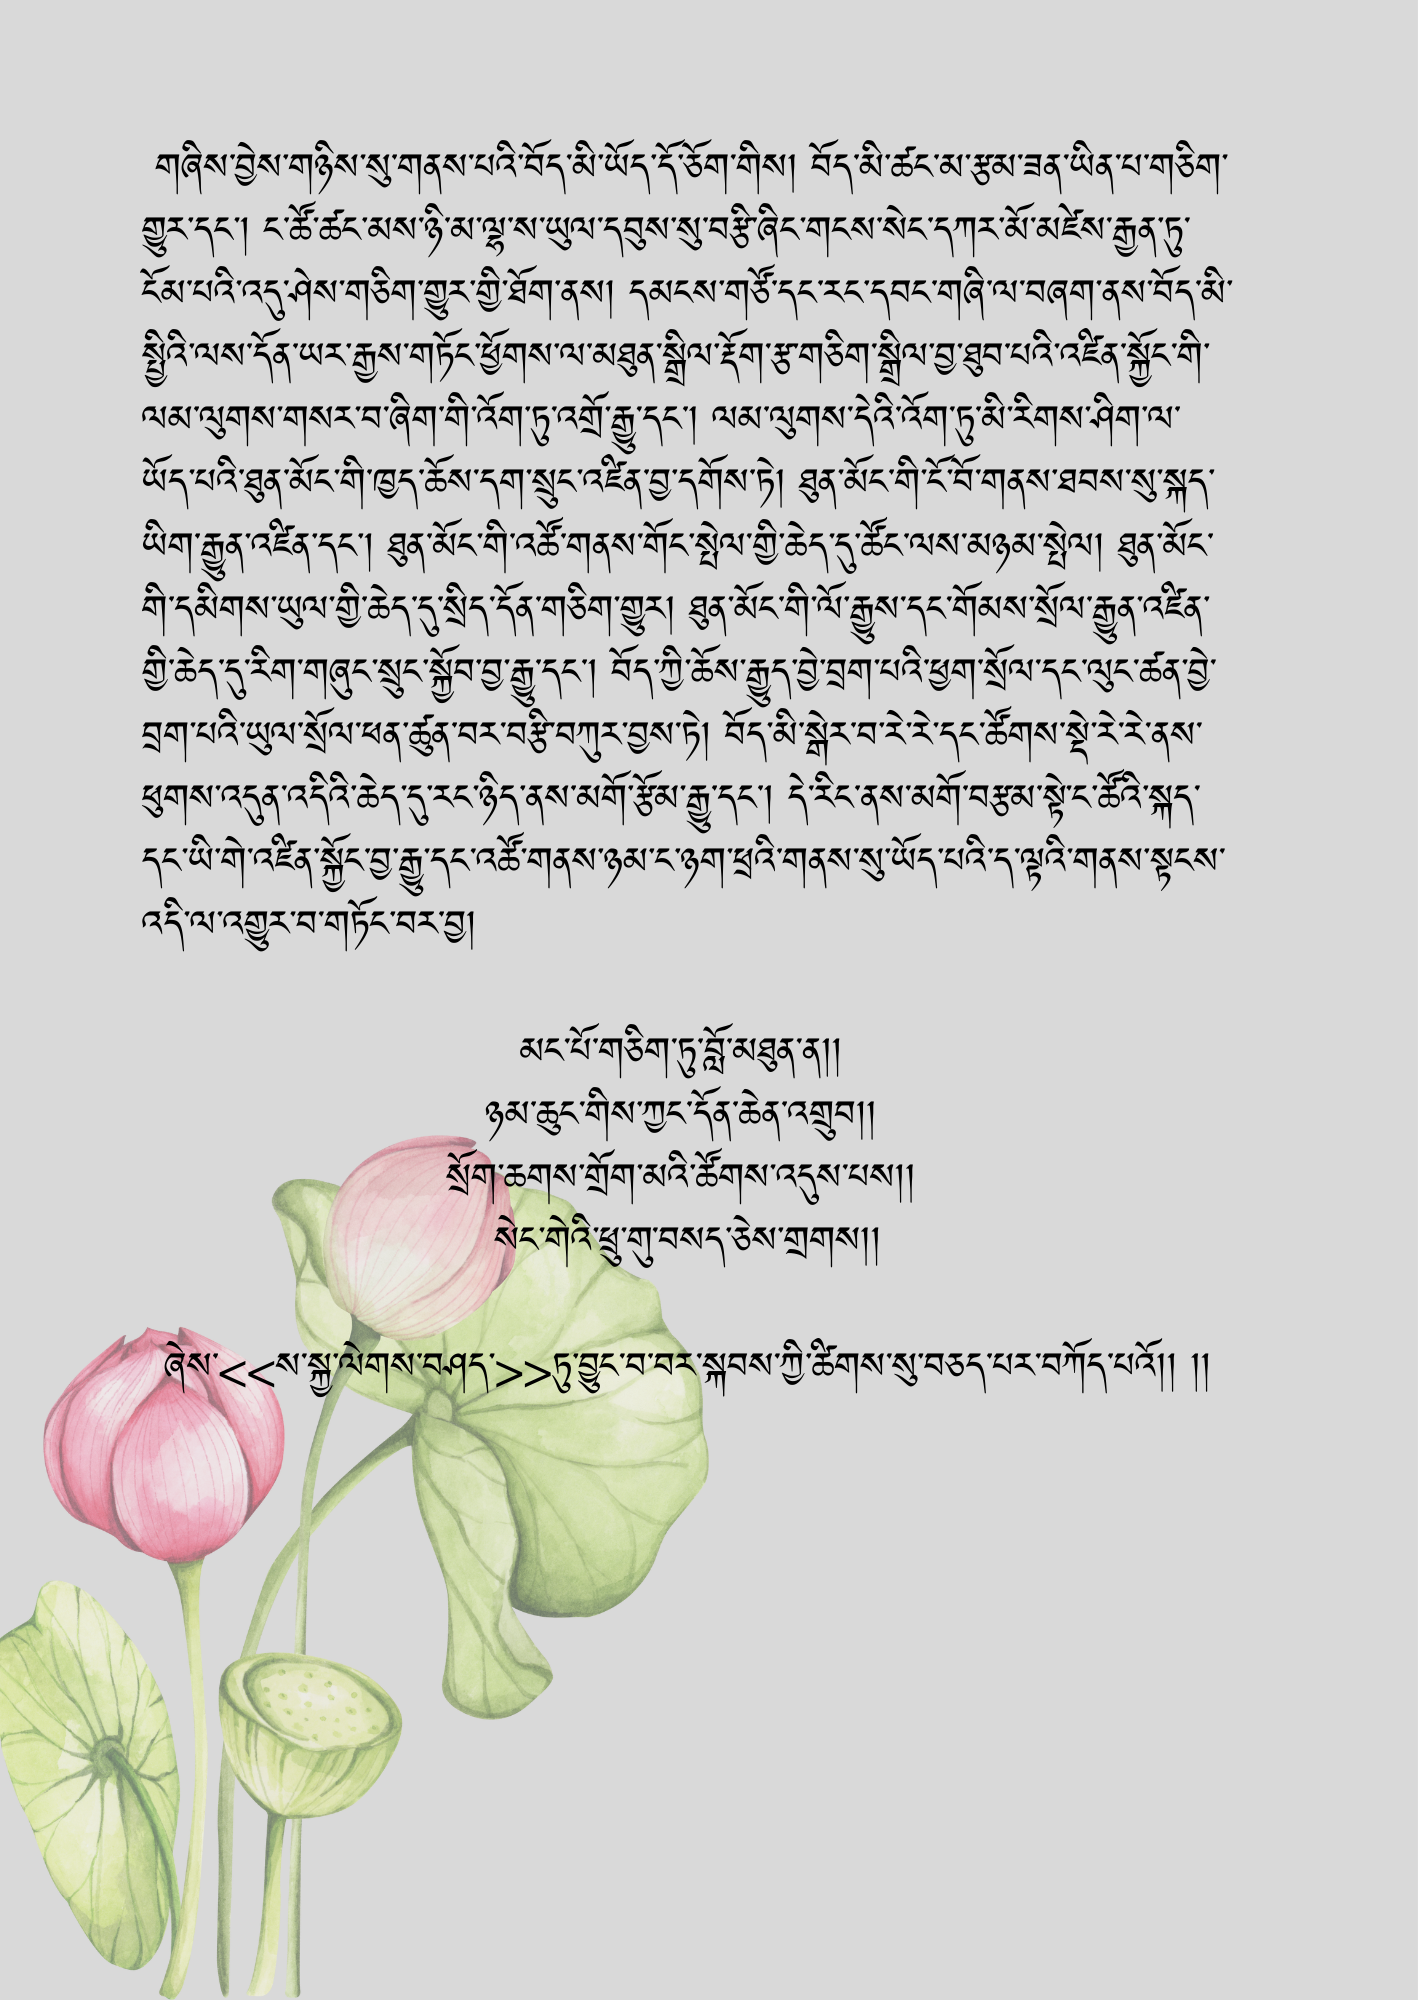 གཞིས་བྱེས་གཉིས་སུ་གནས་པའི་བོད་མི་ཡོད་དོ་ཅོག་གིས། བོད་མི་ཚང་མ་རྩམ་ཟན་ཡིན་པ་གཅིག་
གྱུར་དང་། ང་ཚོ་ཚང་མས་ཉི་མ་ལྷ་ས་ཡུལ་དབུས་སུ་བརྩི་ཞིང་གངས་སེང་དཀར་མོ་མཛེས་རྒྱན་ཏུ་
ངོམ་པའི་འདུ་ཤེས་གཅིག་གྱུར་གྱི་ཐོག་ནས། དམངས་གཙོ་དང་རང་དབང་གཞི་ལ་བཞག་ནས་བོད་མི་
སྤྱིའི་ལས་དོན་ཡར་རྒྱས་གཏོང་ཕྱོགས་ལ་མཐུན་སྒྲིལ་རྡོག་རྩ་གཅིག་སྒྲིལ་བྱ་ཐུབ་པའི་འཛིན་སྐྱོང་གི་
ལམ་ལུགས་གསར་བ་ཞིག་གི་འོག་ཏུ་འགྲོ་རྒྱུ་དང་། ལམ་ལུགས་དེའི་འོག་ཏུ་མི་རིགས་ཤིག་ལ་
ཡོད་པའི་ཐུན་མོང་གི་ཁྱད་ཆོས་དག་སྲུང་འཛིན་བྱ་དགོས་ཏེ། ཐུན་མོང་གི་ངོ་བོ་གནས་ཐབས་སུ་སྐད་
ཡིག་རྒྱུན་འཛིན་དང་། ཐུན་མོང་གི་འཚོ་གནས་གོང་སྤེལ་གྱི་ཆེད་དུ་ཚོང་ལས་མཉམ་སྤེལ། ཐུན་མོང་
གི་དམིགས་ཡུལ་གྱི་ཆེད་དུ་སྲིད་དོན་གཅིག་གྱུར། ཐུན་མོང་གི་ལོ་རྒྱུས་དང་གོམས་སྲོལ་རྒྱུན་འཛིན་
གྱི་ཆེད་དུ་རིག་གཞུང་སྲུང་སྐྱོབ་བྱ་རྒྱུ་དང་། བོད་ཀྱི་ཆོས་རྒྱུད་བྱེ་བྲག་པའི་ཕྱག་སྲོལ་དང་ལུང་ཚན་བྱེ་
བྲག་པའི་ཡུལ་སྲོལ་ཕན་ཚུན་བར་བརྩི་བཀུར་བྱས་ཏེ། བོད་མི་སྒེར་བ་རེ་རེ་དང་ཚོགས་སྡེ་རེ་རེ་ནས་
ཕུགས་འདུན་འདིའི་ཆེད་དུ་རང་ཉིད་ནས་མགོ་རྩོམ་རྒྱུ་དང་། དེ་རིང་ནས་མགོ་བརྩམ་སྟེ་ང་ཚོའི་སྐད་
དང་ཡི་གེ་འཛིན་སྐྱོང་བྱ་རྒྱུ་དང་འཚོ་གནས་ཉམ་ང་ཉག་ཕྲའི་གནས་སུ་ཡོད་པའི་ད་ལྟའི་གནས་སྟངས་
འདི་ལ་འགྱུར་བ་གཏོང་བར་བྱ།
མང་པོ་གཅིག་ཏུ་བློ་མཐུན་ན།།
ཉམ་ཆུང་གིས་ཀྱང་དོན་ཆེན་འགྲུབ།།
སྲོག་ཆགས་གྲོག་མའི་ཚོགས་འདུས་པས།།
སེང་གེའི་ཕྲུ་གུ་བསད་ཅེས་གྲགས།།
ཞེས་<<ས་སྐྱ་ལེགས་བཤད་>>ཏུ་བྱུང་བ་བར་སྐབས་ཀྱི་ཚིགས་སུ་བཅད་པར་བཀོད་པའོ།། །།